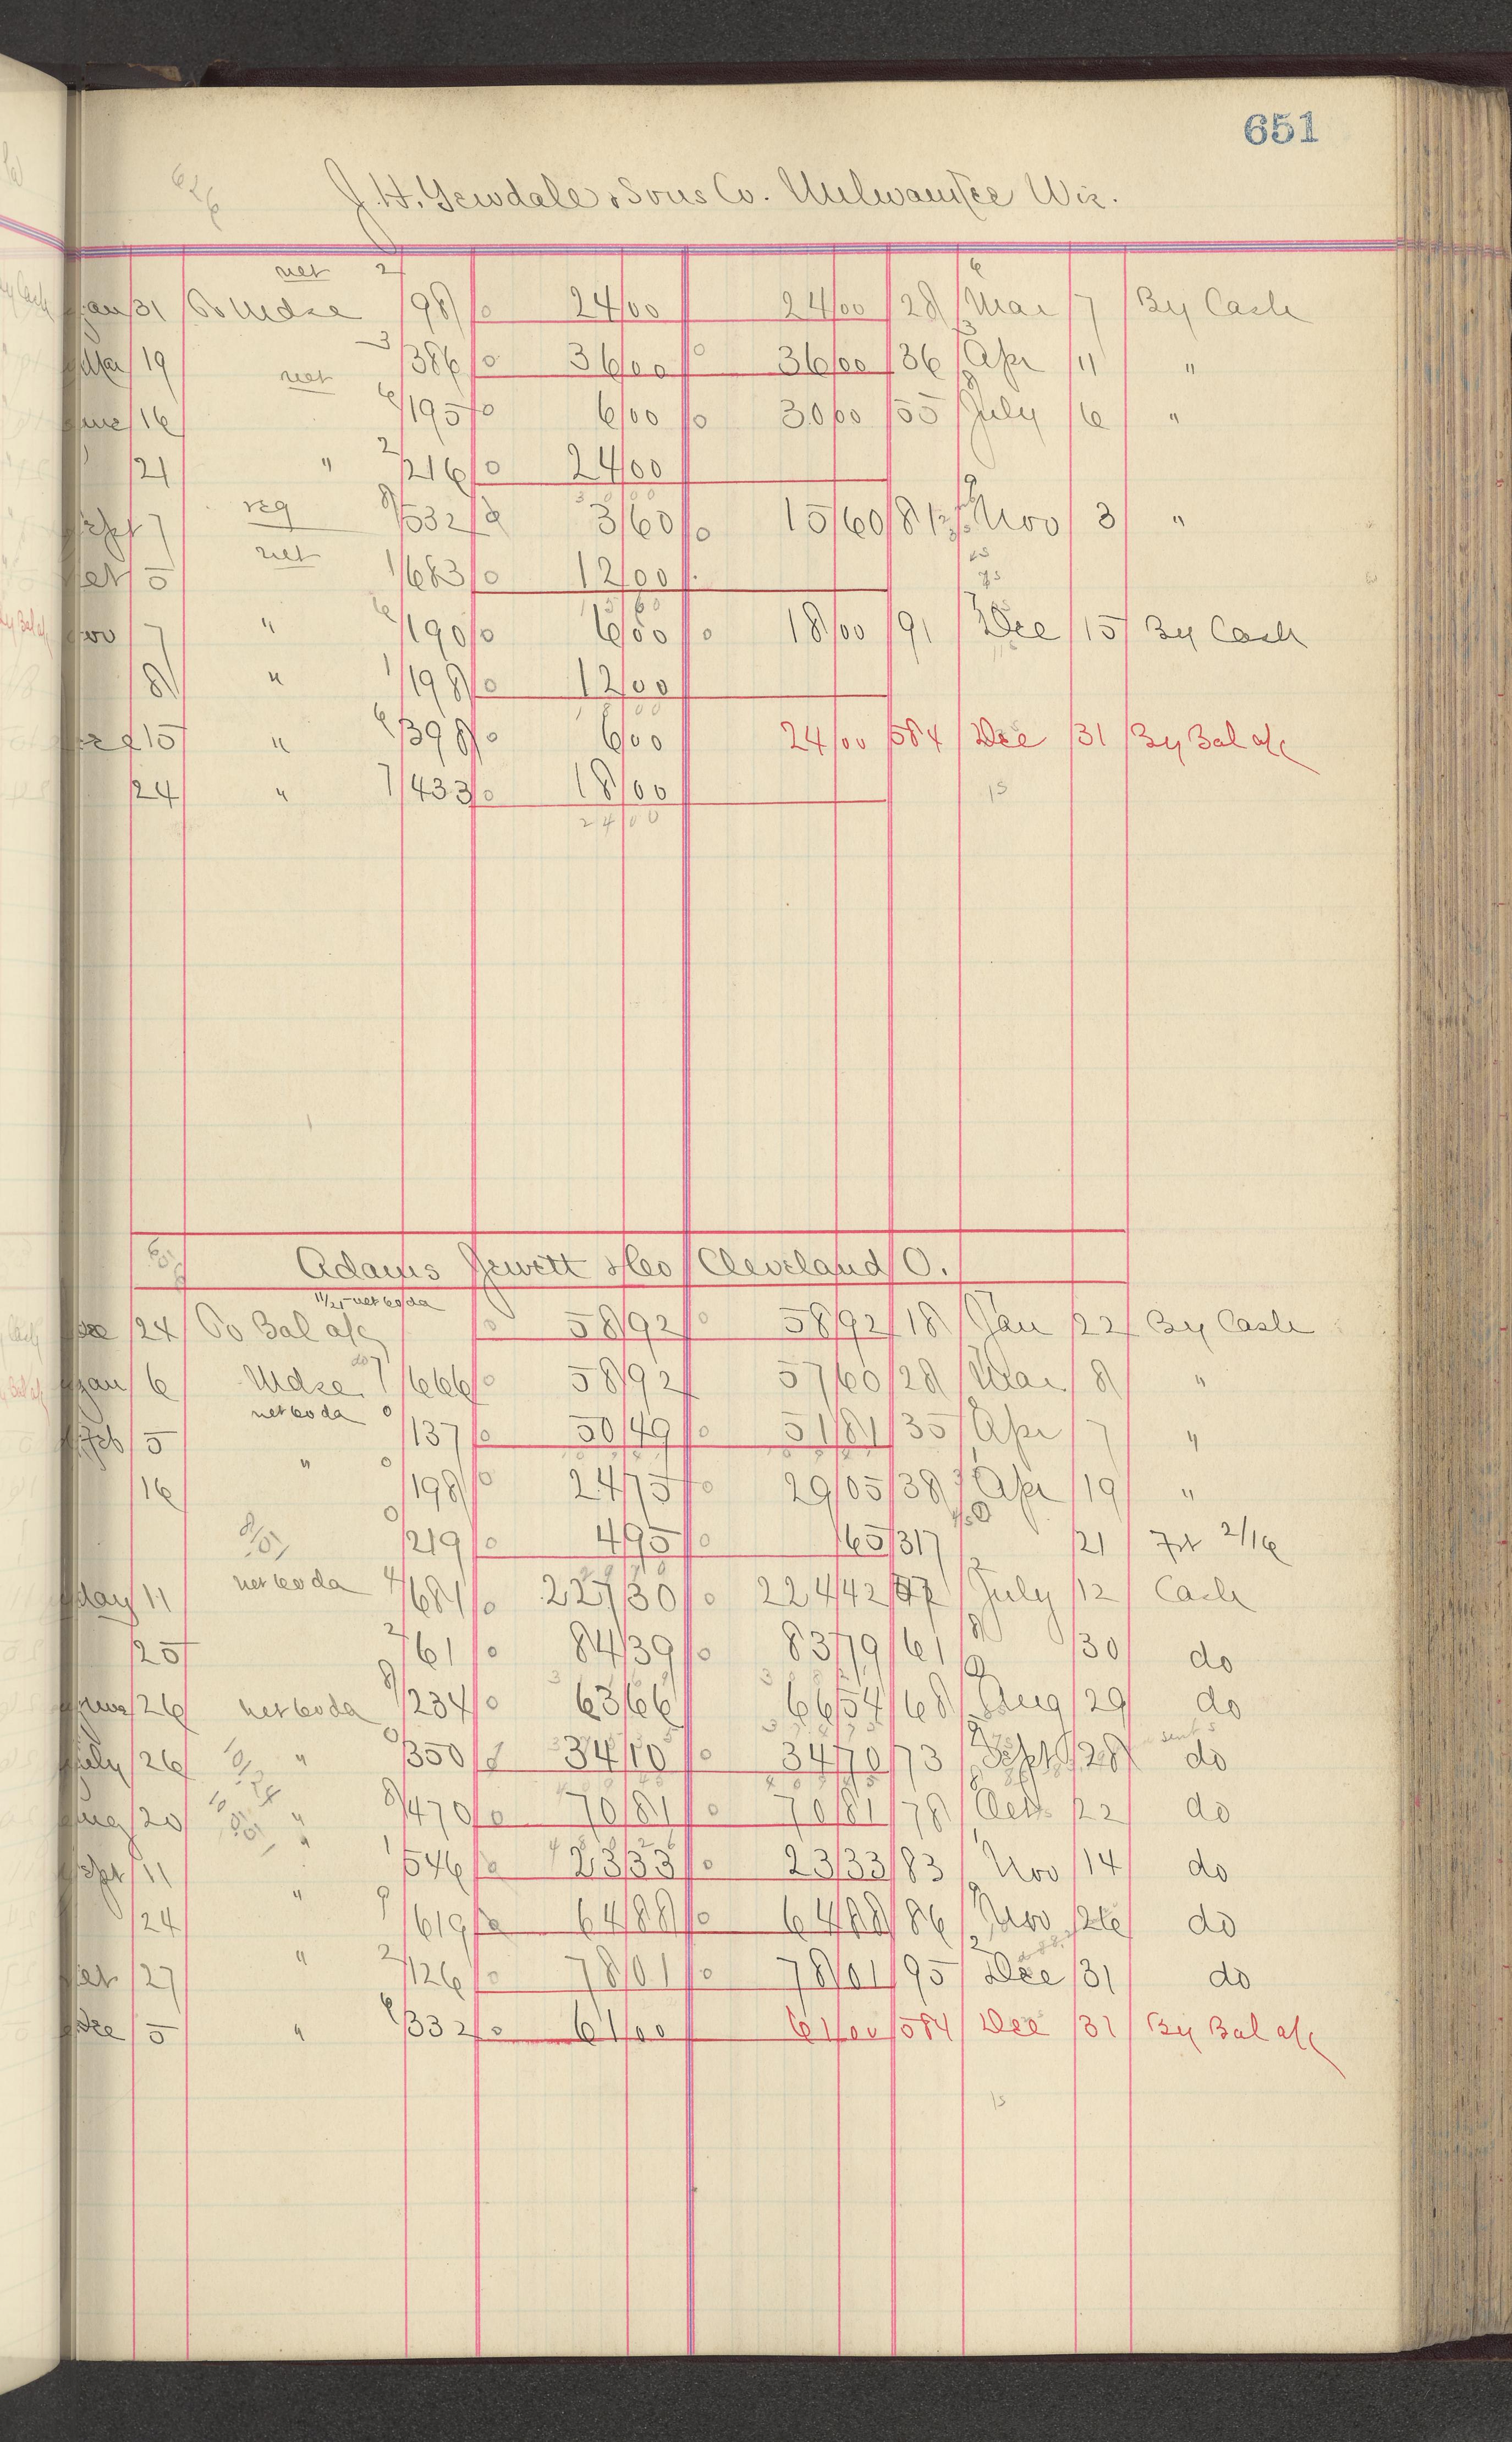 651
J. H. Yewdale & Sons Co. Milwaukee Wis.
net 2
Jan 31 To Mdse 98 24 00 24 00 28 Mar 7 By Cash
Mar 19 3 386 36 00 36 00 36 Apr 11 "
net
June 16 6 195 6 00 30 00 55 July 6 "
21 " 2 216 24 00
Sept 7 reg 8 532 3 60 15 60 81 Nov 3 "
Oct 5 net 1 683 12 00
15 60
Nov 7 " 6 190 6 00 18 00 91 Dec 15 By Cash
8 " 1 198 12 00
18 00
Dec 15 " 6 398 6 00 24 00 584 Dec 31 By Bal a/c
24 " 7 433 18 00
24 00
Adams Jewett & Co Cleveland O.
Dec 24 To Bal a/c 58 92 58 92 18 Jan 22 By Cash
Jan 6 Mdse. 7 666 58 92 57 60 28 Mar 8 "
net 60 da
Feb 5 0 137 50 49 51 81 35 Apr 7 "
16 " 0 198 24 75 29 05 38 Apr 19 "
0 219 4 95 65 317 21 Frt 2/16
May 11 net 60 da 4 681 227 30 224 42 57 July 12 Cash
25 2 61 84 39 83 79 61 30 do
June 26 net 60 da 8 234 63 66 66 54 68 Aug 29 do
July 26 " 0 350 34 70 34 70 73 Sept 28 do
Aug 20 " 8 470 70 81 70 81 78 Oct 22 do
Sept 11 " 1 546 23 33 23 33 83 Nov 14 do
24 " 9 619 64 88 64 88 86 Nov 26 do
Oct 27 " 2 126 78 01 78 01 95 Dec 31 do
Dec 5 " 6 332 61 00 61 00 584 Dec 31 By Bal a/c